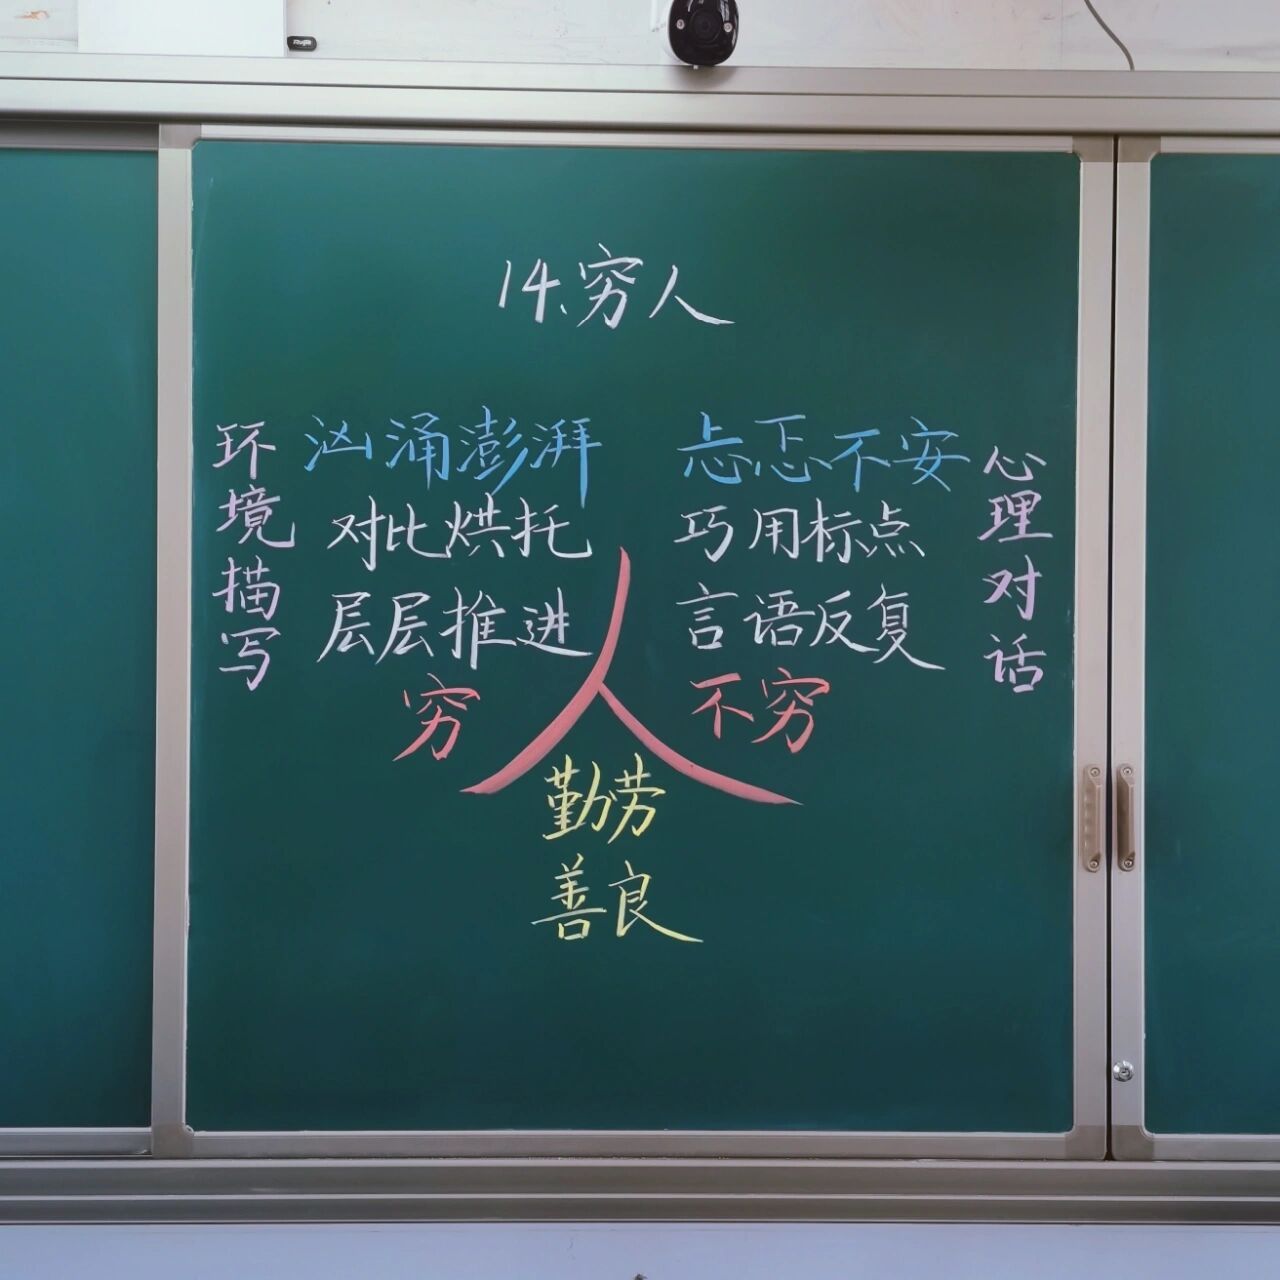 14、穷人
环境描写
汹涌澎湃
对比烘托
层层推进
穷
人
忐忑不安
巧用标点
言语反复
不穷
心理对话
勤劳
善良